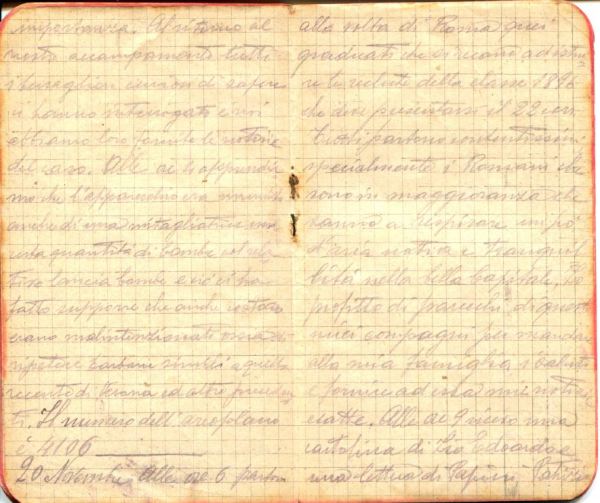 importanza. Al ritorno al
nostro accampamento tutti
i bersaglieri curiosi di sapere
ci hanno interrogati e noi
abbiamo loro fornito le notizie
del caso. Alle ore 12 apprendia
mo che l'apparecchio era munito
anche di una mitragliatrice, una
certa quantità di bombe col rela
tivo lancia bombe e ciò ci ha
fatto supporre che anche costoro
erano malintenzionati ossia di
ripetere barbarie simili a quella
recente di Verona ed altre preceden
ti. Il numero dell'areoplano
è 4106
20 Novembre Alle ore 6 partono
alla volta di Roma quei
graduati che si recano ad istrui
re le reclute della classe 1896
che deve presentarsi il 22 corr.
Tutti partono contentissimi
specialmente i Romani che
sono in maggioranza che
vanno a respirare un pò
d'aria nativa e tranquil
lità nella bella Capitale. Io
profitto di parecchi di questi
miei compagni per mandare
alla mia famiglia i saluti
e fornire ad essa mie notizie
esatte. Alle ore 9 ricevo una
cartolina di Zio Edoardo e
una lettera di Papini